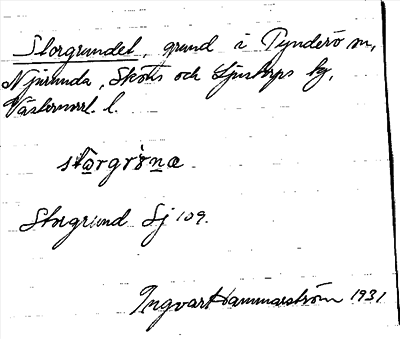 Storgrundet, grund i Tynderö sn,
Njurunda, Sköns och Ljustorps tg,
Västernorrl. l.
storgrö̀næ
Storgrund Sj 109.
Ingvar Hammarström 1931